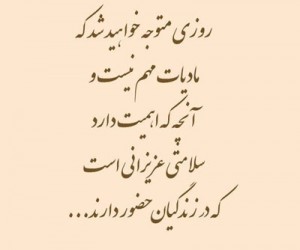 روزی متوجه خواهید شد که
مادیات مهم نیست و
آنچه که اهمیت دارد
سلامتی عزیزانی است
که در زندگیان حضور دارند...